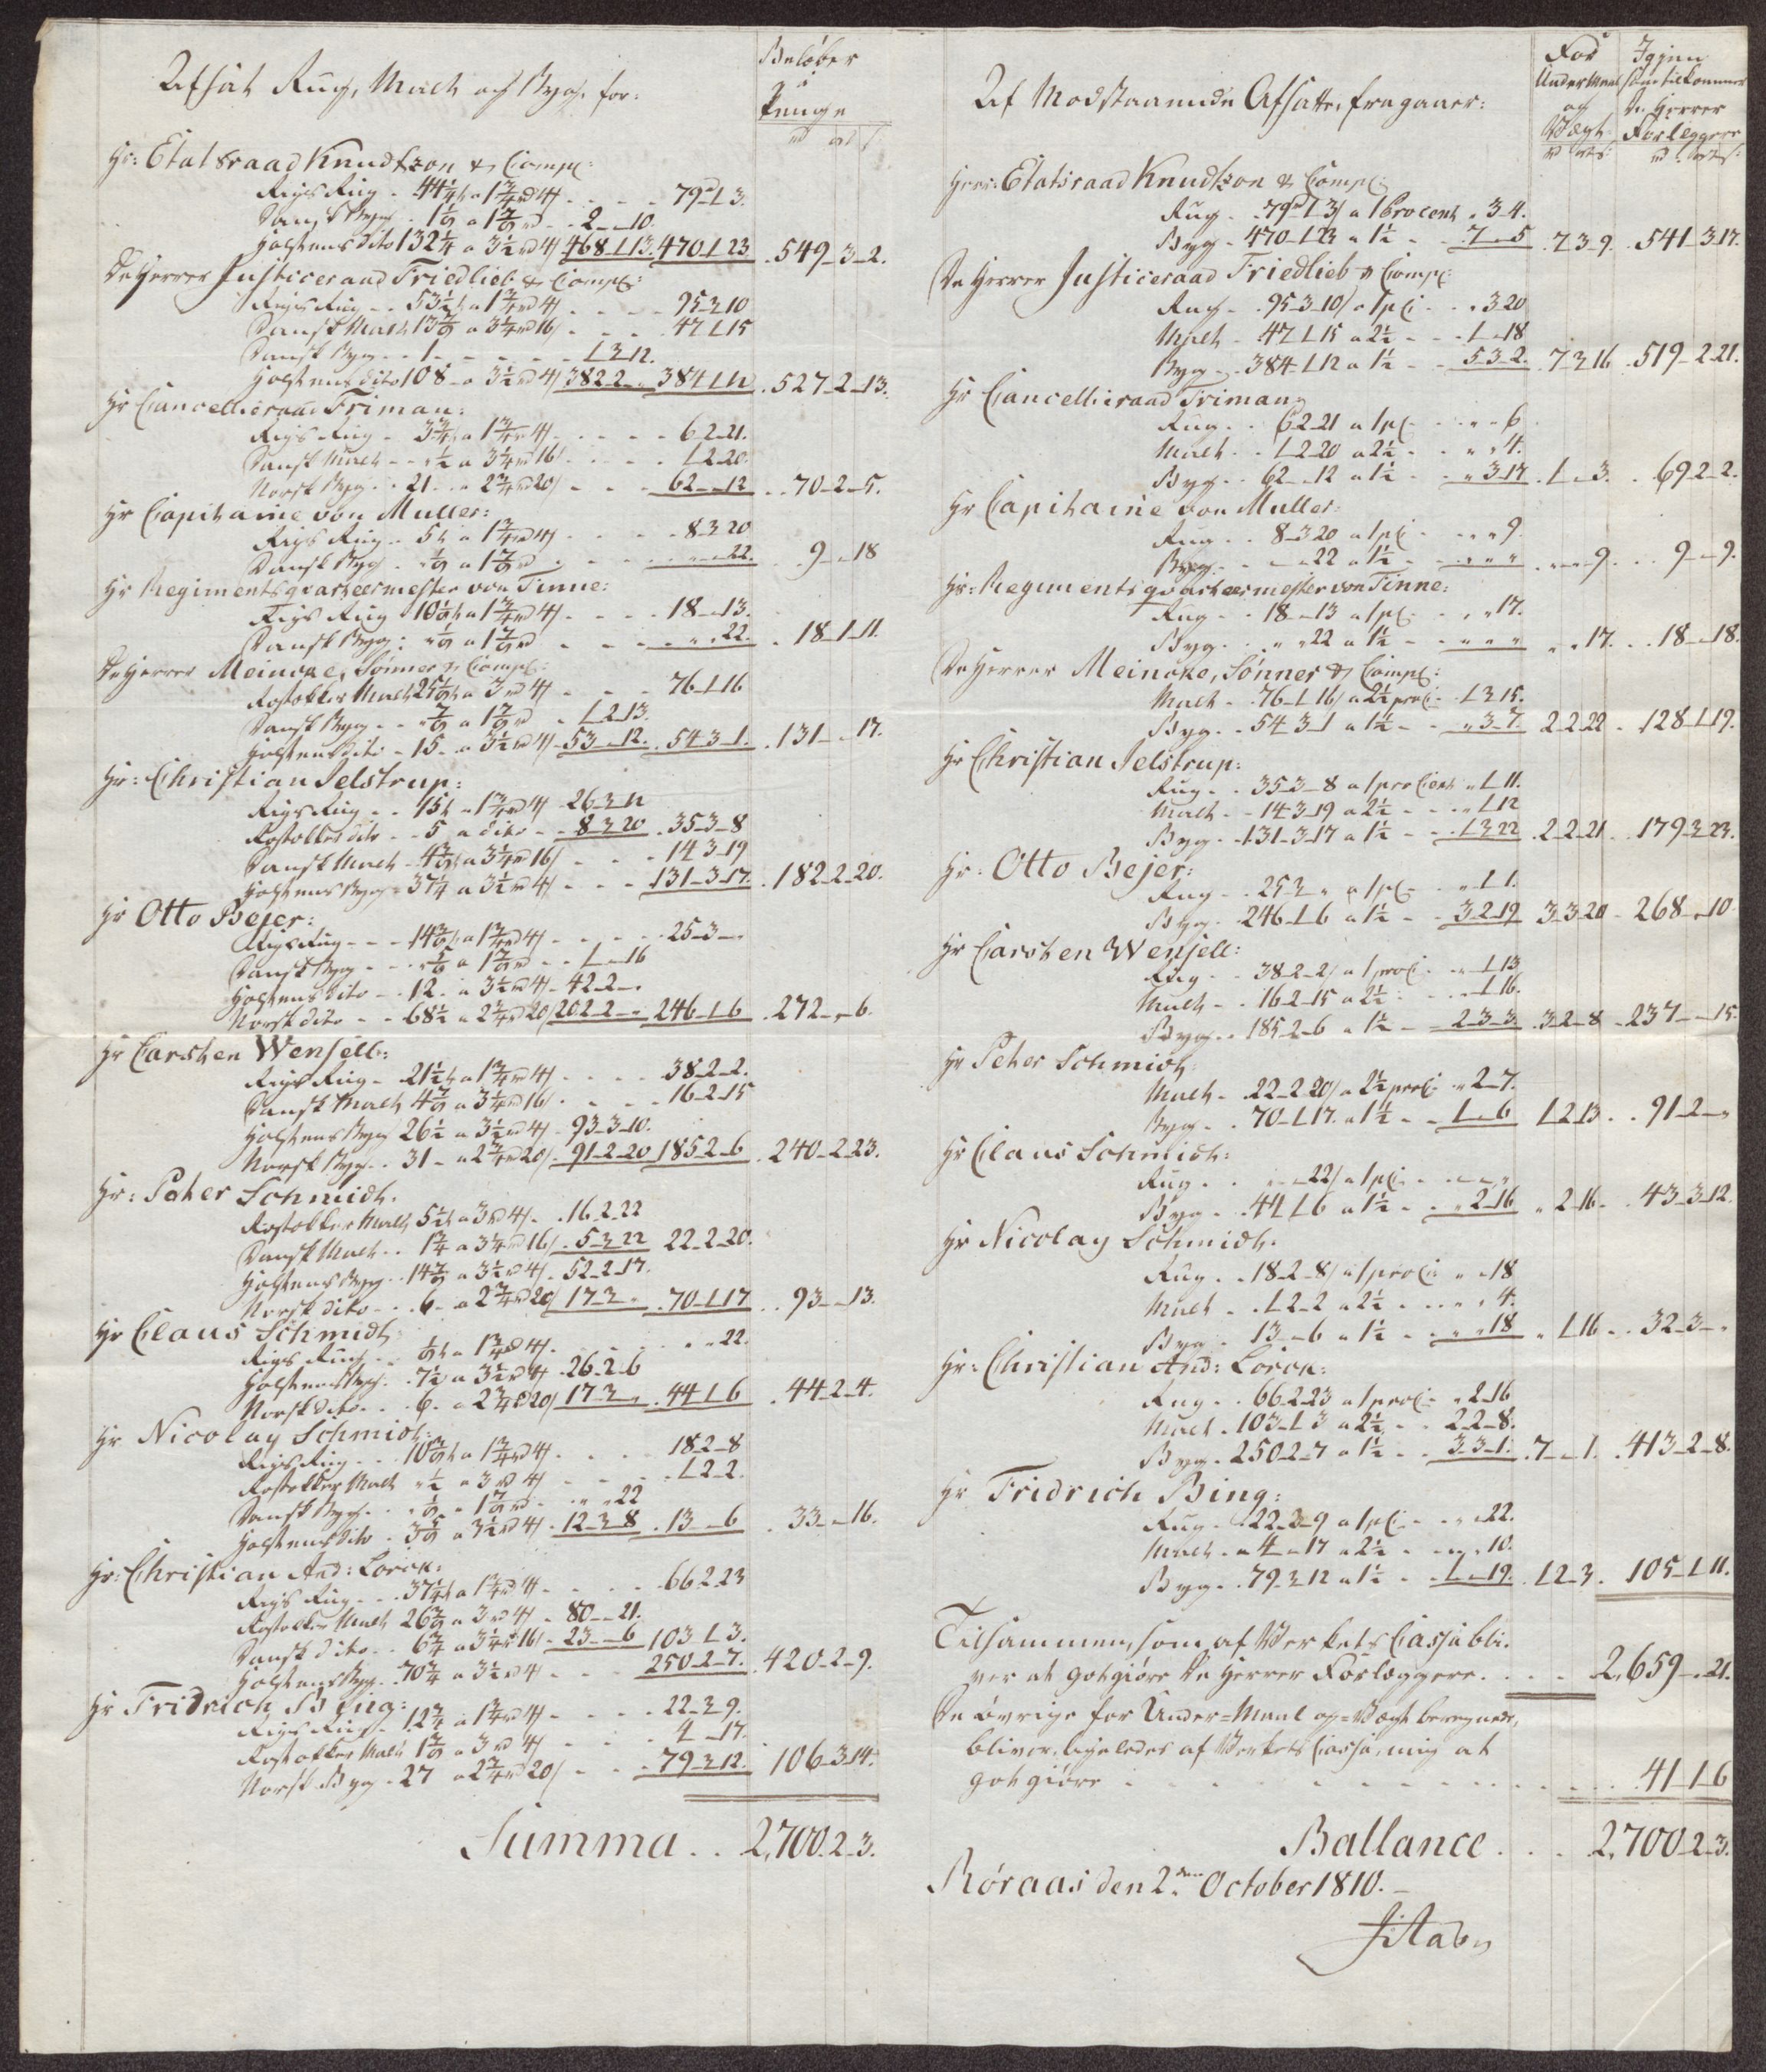 Afsat Rug, Malt og Byg, for:
Beløber
i
Penge
rd ort s
Hr: Etatsraad Knudtzon & Comp:
Rigs Rug - 44¼ t a 1¾ rd 4 s - - - 79-1-3.
Dansk Byg - 1⅑ a 1⅞ rd - - 2 - 10.
Holstens dito 132¼ a 3½ rd 4 s 468-1-13. 470-1-23 . 549-3-2.
De Herrer Justiceraad Friedlieb & Comp:
Rigs Rug - - 53½ t a 1¾ rd 4 s - - - 95-3-10
Dansk Malt 13 a 3¼ rd 16 s - - - 47-1-15
Dansk Byg - - 1 - - - - 1-3-12.
Holstens dito 108 - a 3½ rd 4 s 382-2-" 384-1-12 . 527-2-13.
Hr Cancellieraad Friman:
Rigs Rug - 3¾ t a 1¾ rd 4 s - - - 6-2-21.
Dansk Malt - - " ½ a 3¼ rd 16 s - - - 1-2-20.
Norsk Byg - - 21 - - a 2¾ rd 20 s - - - 62-"-12 . . 70-2-5.
Hr Capitaine von Muller:
Rigs Rug - - 5 t a 1¾ rd 4 s - - - 8-3-20
Dansk Byg - - - - 22. 9-"-18
Hr Regimentsqvarteermester von Tinne:
Rigs Rug 10 t a 1¾ rd 4 s - - - 18-"-13.
Dansk Byg - - - " "-22. . 18-1-11.
De Herrer Meincke, Sønner & Comp:
Rostokker Malt 25 t a 3 rd 4 s - - - 76-1-16
Dansk Byg - - 1-2-13.
Holstens dito - 15 - a 3½ rd 4 s - 53-"-12. . 54-3-1. . 131-"-17.
Hr: Christian Jelstrup:
Rigs Rug - - 15 t a 1¾ rd 4 s - 26-3-12
Rostokker dito - - 5 a dito - - 8-3-20 . 35-3-8
Dansk Malt - a 3¼ rd 16 s - - - 14-3-19
Holstens Byg - 37¼ a 3½ rd 4 s - - - 131-3-17. . 182-2-20.
Hr Otto Bejer:
Rigs Rug - - - 14 a 1¾ rd 4 s - - - 25-3-"
Dansk Byg - - - 1-"-16
Holstens dito - . 12 - a 3½ rd 4 s - 42-2-"
Norsk dito - - 68½ a 2¾ rd 20 s 202-2-" 246-1-6 . 272-"-6.
Hr Carsten Wensell:
Rigs Rug - 21½ t a 1¾ rd 4 s - - - 38-2-2.
Dansk Malt a 3¼ rd 16 s . - - 16-2-15
Holstens Byg 26½ a 3½ rd 4 s - 93-3-10.
Norsk Byg - . 31 - a 2¾ rd 20 s . 91-2-20 185-2-6 . 240-2-23.
Hr: Peter Schmidt.
Rostokker Malt 5½ t a 3 rd 4 s - . 16-2-22
Dansk Malt - . 1¾ a 3¼ rd 16 s . 5-3-22 22-2-20.
Holstens Byg . . 14 a 3½ rd 4 s . 52-2-17.
Norsk dito - . . 6 - a 2¾ rd 20 s 17-3-" . 70-1-17 . . 93-"-13.
Hr Claus Schmidt
Rigs Rug - . t a 1¾ rd 4 s - - - " "-22.
Holstens Byg - . 7½ a 3½ rd 4 s 26-2-6
Norsk dito . . . 6 - a 2¾ rd 20 s 17-3-" . 44-1-6 . 44-2-4.
Hr Nicolay Schmidt:
Rigs Rug - . 10 t a 1¾ rd 4 s - - - 18-2-8
Rostokker Malt " ½ a 3 rd 4 s - - - 1-2-2.
Dansk Byg - . . " "-22
Holstens dito . a 3½ rd 4 s . 12-3-8 . 13-"-6 . 33-"-16.
Hr: Christian And: Lorck:
Rigs Rug - . . 37¼ t a 1¾ rd 4 s - - - 66-2-23
Rostokker Malt 26 a 3 rd 4 s . 80-"-21.
Dansk dito - . 6¾ a 3¼ rd 16 s - 23-"-6 103-1-3.
Holstens Byg . 70¾ a 3½ rd 4 s - - - 250-2-7. . 420-2-9.
Hr Fridrich Bing:
Rigs Rug - 12¾ a 1¾ rd 4 s - - - 22-3-9.
Rostokker Malt a 3 rd 4 s - - - 4-"-17.
Norsk Byg - 27 a 2¾ rd 20 s - - - 79-3-12. 106-3-14.
Summa . . 2,700-2-3.
Af Modstaaende Afsatte, fragaaer:
For
Under Maal
og
Vægt:
rd ort s:
Igjen
som tilkommer
De Herrer
Forleggere
rd. ort s:
Herr: Etatsraad Knudtzon & Comp:
Rug - . 79-1-3 a 1 Procent . 3-4.
Byg - 470-1-23 a 1½ - - 7-"-5 . 7-3-9. . 541-3-17.
De Herrer Justiceraad Friedlieb & Comp:
Rug - . 95-3-10 a 1 pC: - - " 3-20
Malt - 47-1-15 a 2½ - - - 1-"-18
Byg - . 384-1-12 a 1½ - - 5-3-2. 7-3-16 . 519-2-21.
Hr Cancellieraad Friman,
Rug . . 6-2-21 a 1 pC: - . . " - " - 6
Malt - . 1-2-20 a 2½ - . " " 4.
Byg - . 62-"-12 a 1½ - - " 3-17 . 1-"-3. . 69-2-2.
Hr Capitaine von Muller:
Rug . . 8-3-20 a 1 pC: - . . " " 9.
Byg - . "-"-22 a 1½ - - " " " . "-"-9 . . . 9-"-9.
Hr: Regimentsqvarteermester von Tinne:
Rug - . 18-"-13 a 1 pC: - . " " 17.
Byg - . " "-22 a 1½ - - " " " " "-17. . . 18-"-18.
De Herrer Meincke, Sønner & Comp:
Malt - . 76-1-16 a 2½ proC: - 1-3-15.
Byg - . 54-3-1 a 1½ - - " 3-7. 2-2-22 - . 128-1-19.
Hr Christian Jelstrup:
Rug - . 35-3-8 a 1 pro Cent " 1-11.
Malt - - 14-3-19 a 2½ - - - " 1-12
Byg - . 131-3-17 a 1½ - - 1-3-22 . 2-2-21 . . 179-3-23.
Hr: Otto Bejer:
Rug - . 25-3-" a 1 pC: - . " 1-1.
Byg - . 246-1-6 a 1½ - - 3-2-19 3-3-20 - 268-"-10.
Hr Carsten Wensell:
Rug - . 38-2-2 a 1 proC: - " 1-13
Malt - . 16-2-15 a 2½ - . - " 1-16.
Byg . . 185-2-6 a 1½ - - 2-3-3 . 3-2-8 - 237-"-15.
Hr Peter Schmidt
Malt - . 22-2-20 a 2½ proC: - " 2-7.
Byg - . 70-1-17. a 1½ - - 1-"-6 1-2-13 . . 91-2-"
Hr Claus Schmidt:
Rug . . "-"-22 a 1 pC: - . "-"-"
Byg - . 44-1-6 a 1½ - - " 2-16 " 2-16 . . 43-3-12.
Hr Nicolay Schmidt.
Rug . . 18-2-8 a 1 proC: " "-18
Malt - . 1-2-2 a 2½ . . . " " 4.
Byg - 13-"-6 a 1½ . . " "-18 " 1-16 - . 32-3-"
Hr: Christian And: Lorck:
Rug . . 66-2-23 a 1 proC: - " 2-16
Malt . 103-1-3 a 2½ - . 2-2-8.
Byg . 250-2-7 a 1½ . . 3-3-1. . 7-"-1. . 413-2-8.
Hr Fridrich Bing:
Rug - . 22-3-9 a 1 pC: - . " "-22.
Malt - " 4-"-17 a 2½ . . " " 10.
Byg - . 79-3-12 a 1½ - - 1-"-19. . 1-2-3. 105-1-11.
Tilsammen, som af Verkets Cassa bli-
ver at godtgiøre De Herrer Forlæggere . . . . 2,659-"-21.
De øvrige for Under-Maal og -Vægt beregnede,
bliver ligeledes af Verkets Cassa, mig at
godtgiøre . . . . . . . . . 41-1-6
Ballance . . . 2,700-2-3.
Røraas den 2den October 1810.